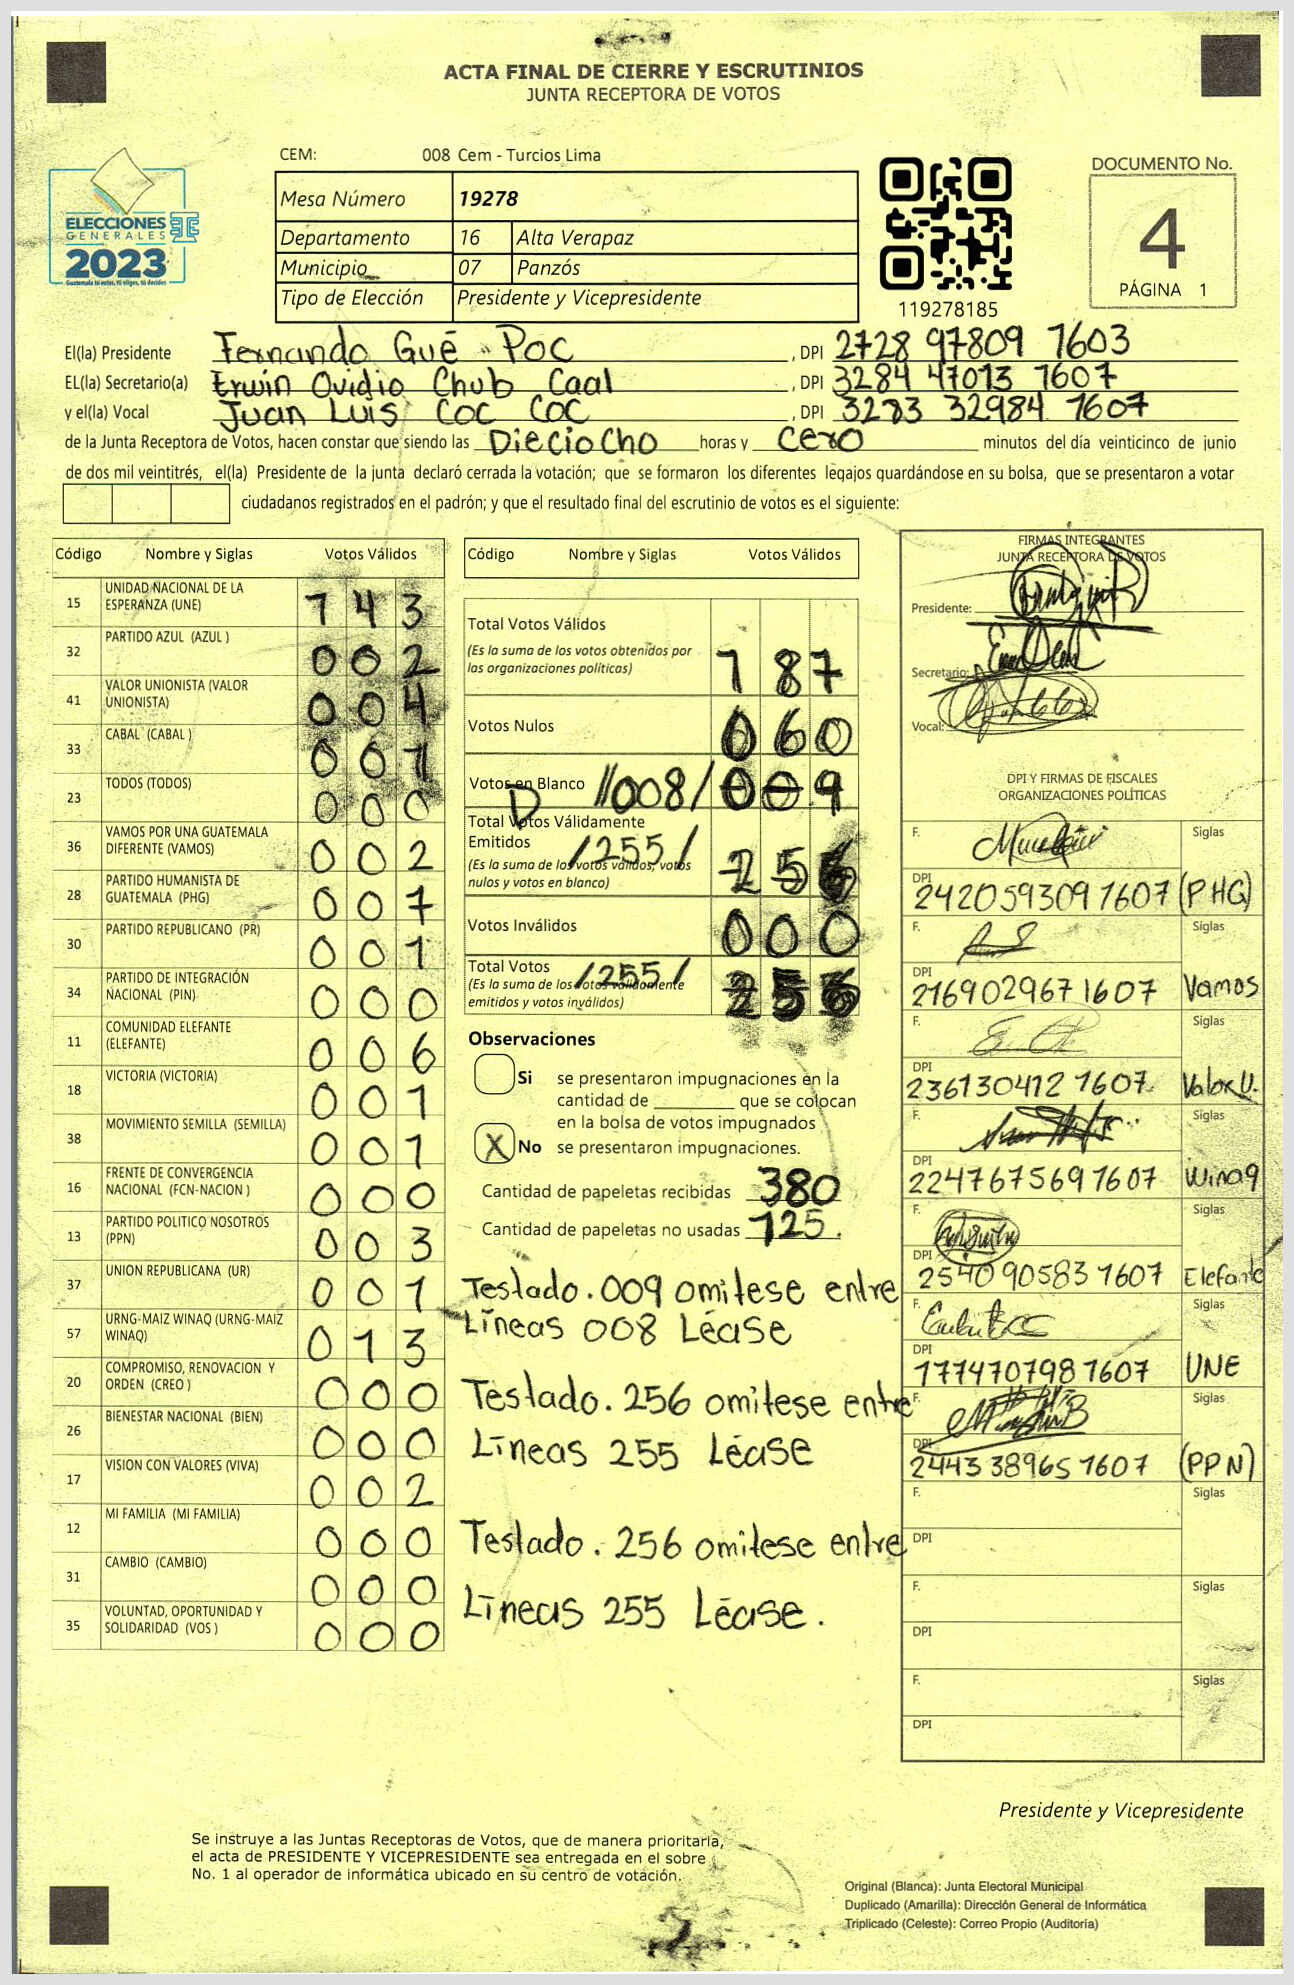 ACTA FINAL DE CIERRE Y ESCRUTINIOS
JUNTA RECEPTORA DE VOTOS
CEM: 008 Cem - Turcios Lima
DOCUMENTO No.
4
PÁGINA 1
ELECCIONES
GENERALES
2023
Guatemala tú votas, tú eliges, tú decides
Mesa Número 19278
Departamento 16 Alta Verapaz
Municipio 07 Panzós
Tipo de Elección Presidente y Vicepresidente
119278185
El(la) Presidente Fernando Gué Poc , DPI 2728 97809 1603
EL(la) Secretario(a) Erwin Ovidio Chub Caal , DPI 3284 47013 1607
y el(la) Vocal Juan Luis Coc Coc , DPI 3283 32984 1607
de la Junta Receptora de Votos, hacen constar que siendo las Dieciocho horas y Cero minutos del día veinticinco de junio
de dos mil veintitrés, el(la) Presidente de la junta declaró cerrada la votación; que se formaron los diferentes legajos guardándose en su bolsa, que se presentaron a votar
ciudadanos registrados en el padrón; y que el resultado final del escrutinio de votos es el siguiente:
Código Nombre y Siglas Votos Válidos
15 UNIDAD NACIONAL DE LA ESPERANZA (UNE) 1 4 3
32 PARTIDO AZUL (AZUL ) 0 0 2
41 VALOR UNIONISTA (VALOR UNIONISTA) 0 0 4
33 CABAL (CABAL ) 0 0 1
23 TODOS (TODOS) 0 0 0
36 VAMOS POR UNA GUATEMALA DIFERENTE (VAMOS) 0 0 2
28 PARTIDO HUMANISTA DE GUATEMALA (PHG) 0 0 7
30 PARTIDO REPUBLICANO (PR) 0 0 1
34 PARTIDO DE INTEGRACIÓN NACIONAL (PIN) 0 0 0
11 COMUNIDAD ELEFANTE (ELEFANTE) 0 0 6
18 VICTORIA (VICTORIA) 0 0 1
38 MOVIMIENTO SEMILLA (SEMILLA) 0 0 1
16 FRENTE DE CONVERGENCIA NACIONAL (FCN-NACION ) 0 0 0
13 PARTIDO POLITICO NOSOTROS (PPN) 0 0 3
37 UNION REPUBLICANA (UR) 0 0 1
57 URNG-MAIZ WINAQ (URNG-MAIZ WINAQ) 0 1 3
20 COMPROMISO, RENOVACION Y ORDEN (CREO ) 0 0 0
26 BIENESTAR NACIONAL (BIEN) 0 0 0
17 VISION CON VALORES (VIVA) 0 0 2
12 MI FAMILIA (MI FAMILIA) 0 0 0
31 CAMBIO (CAMBIO) 0 0 0
35 VOLUNTAD, OPORTUNIDAD Y SOLIDARIDAD (VOS ) 0 0 0
Código Nombre y Siglas Votos Válidos
Total Votos Válidos
(Es la suma de los votos obtenidos por
las organizaciones políticas) 1 8 7
Votos Nulos 0 6 0
Votos en Blanco //008/ 0 0 9
Total Votos Válidamente
Emitidos /255/ 2 5 6
(Es la suma de los votos válidos, votos
nulos y votos en blanco)
Votos Inválidos 0 0 0
Total Votos /255/ 2 5 6
(Es la suma de los votos válidamente
emitidos y votos inválidos)
Observaciones
Si se presentaron impugnaciones en la
cantidad de ________ que se colocan
en la bolsa de votos impugnados
X No se presentaron impugnaciones.
Cantidad de papeletas recibidas 380
Cantidad de papeletas no usadas 125.
Testado. 009 omitese entre
Líneas 008 Léase
Testado. 256 omitese entre
Líneas 255 Léase
Testado. 256 omitese entre
Líneas 255 Léase.
FIRMAS INTEGRANTES
JUNTA RECEPTORA DE VOTOS
Presidente:
Secretario:
Vocal:
DPI Y FIRMAS DE FISCALES
ORGANIZACIONES POLÍTICAS
F. Siglas
DPI 2420593091607 (PHG)
F. Siglas
DPI 2169029671607 Vamos
F. Siglas
DPI 236130412 1607 Valor U.
F. Siglas
DPI 2247675691607 Winaq
F. Siglas
DPI 2540905831607 Elefante
F. Siglas
DPI 1774707981607 UNE
F. Siglas
DPI 2443389651607 (PPN)
F. Siglas
DPI
F. Siglas
DPI
F. Siglas
DPI
Presidente y Vicepresidente
Se instruye a las Juntas Receptoras de Votos, que de manera prioritaria,
el acta de PRESIDENTE Y VICEPRESIDENTE sea entregada en el sobre
No. 1 al operador de informática ubicado en su centro de votación.
Original (Blanca): Junta Electoral Municipal
Duplicado (Amarilla): Dirección General de Informática
Triplicado (Celeste): Correo Propio (Auditoría)